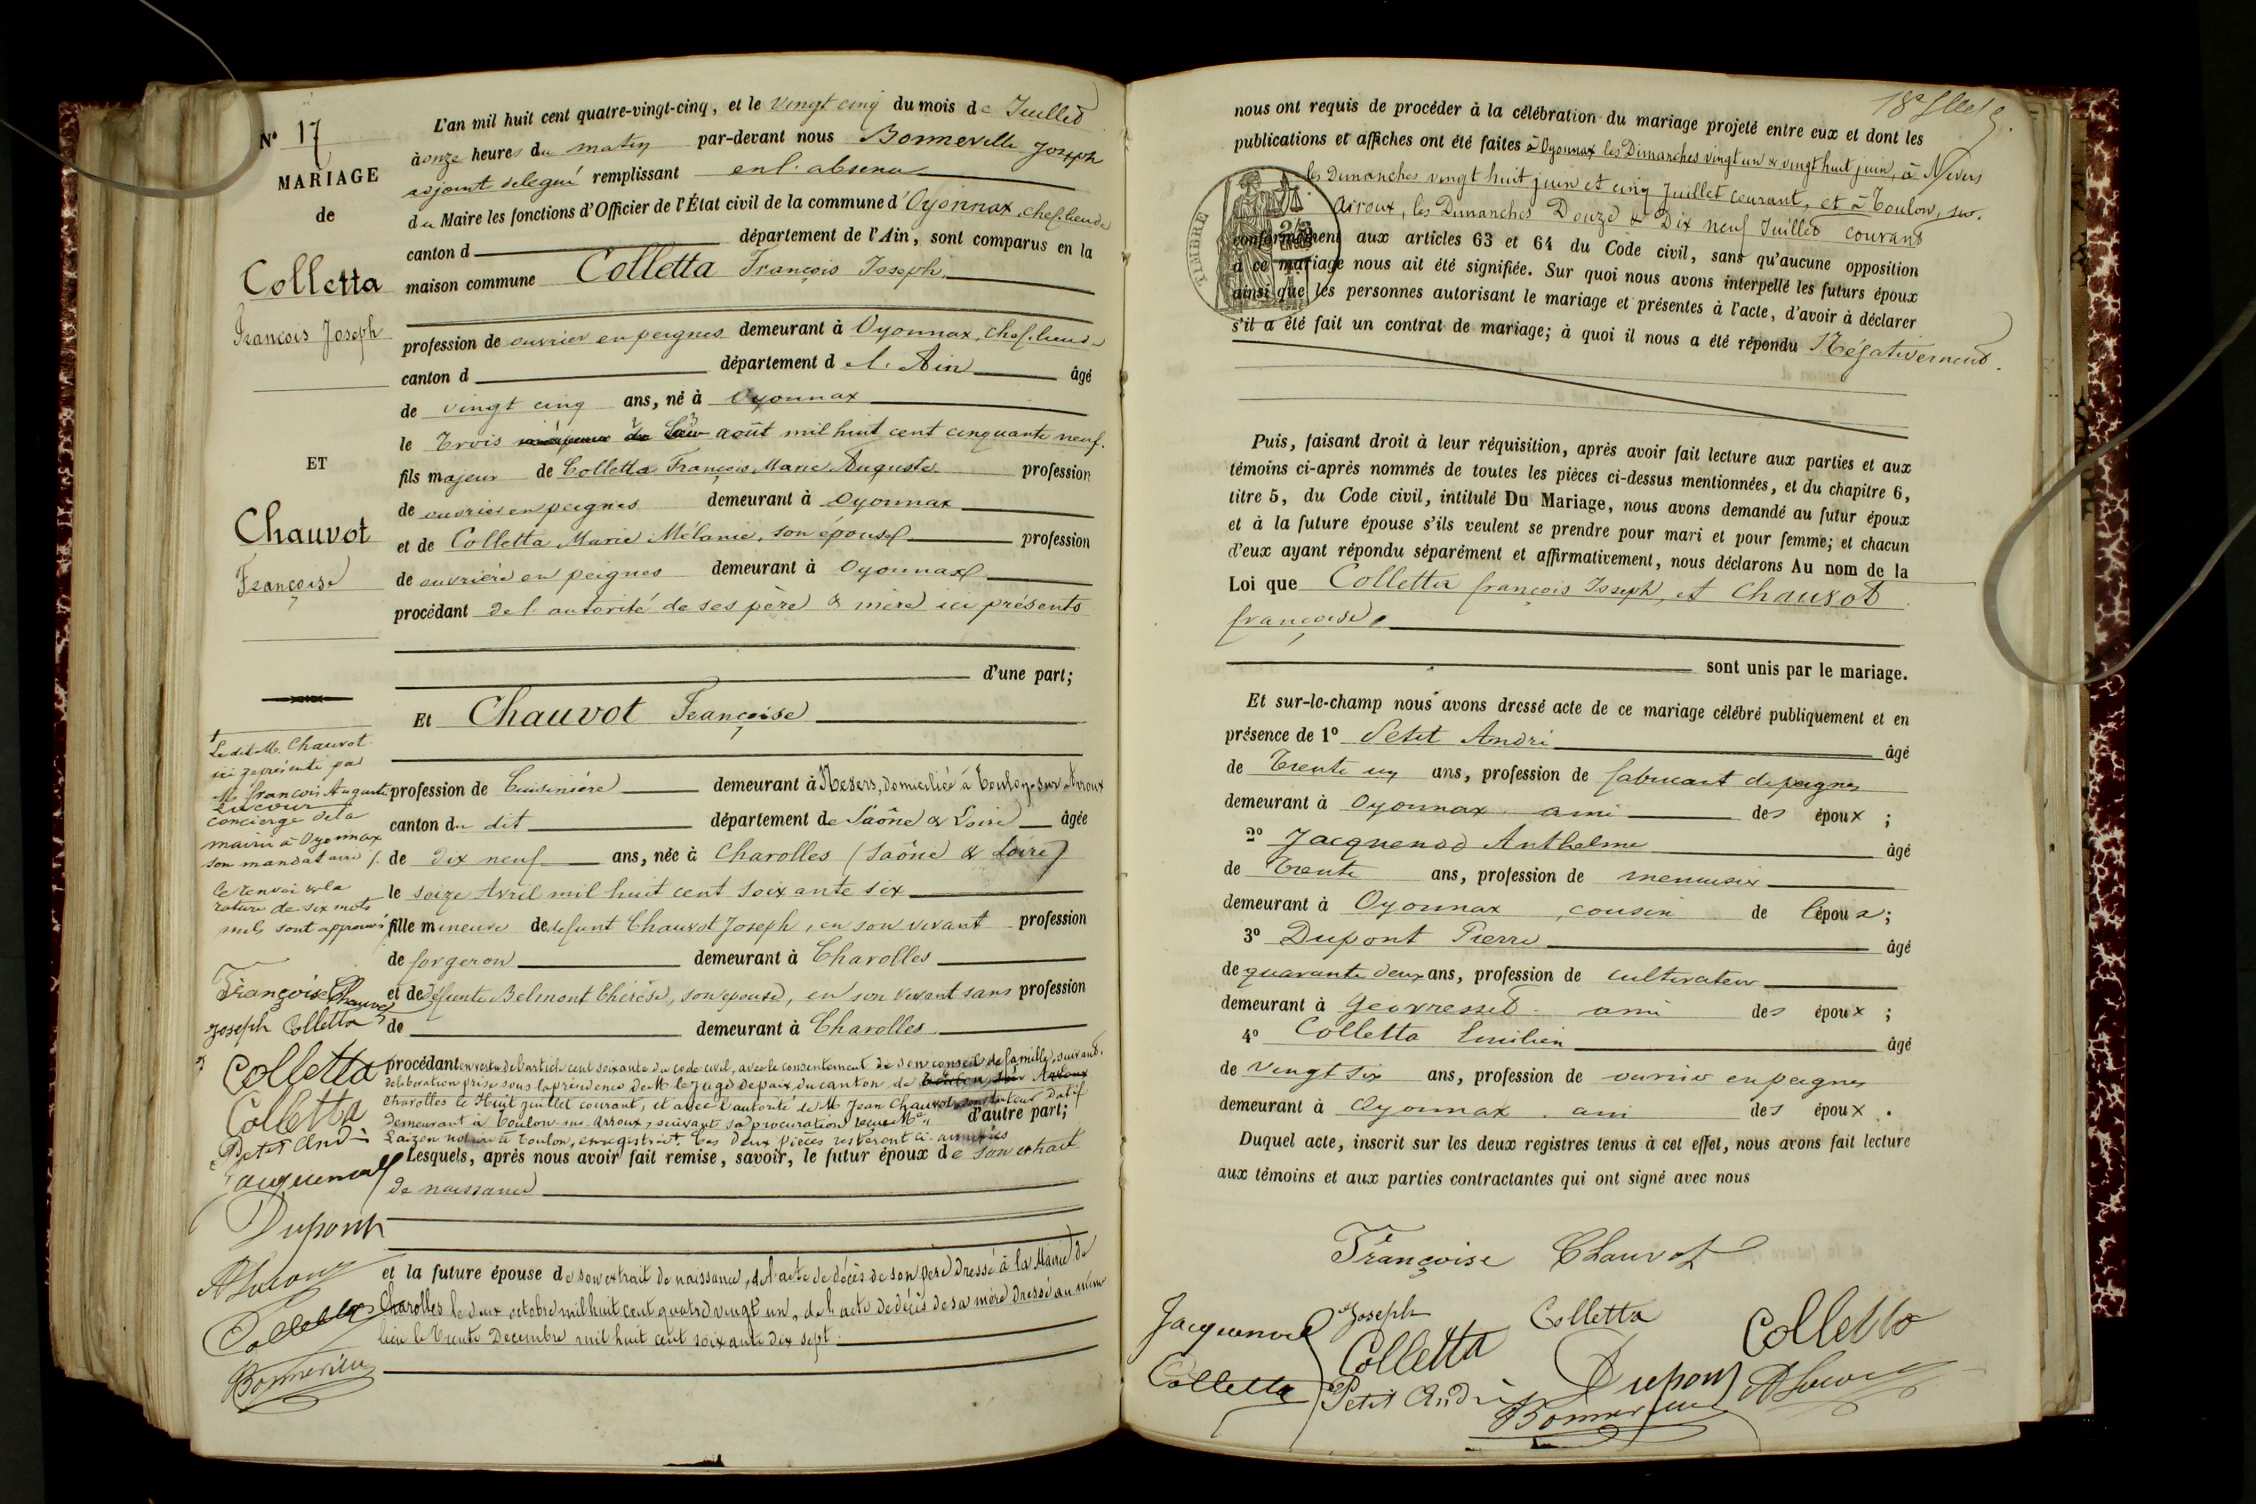 N° 17
MARIAGE
de
Colletta
François Joseph
ET
Chauvot
Françoise
L'an mil huit cent quatre-vingt-cinq, et le vingt cinq du mois de Juillet
à onze heures du matin par-devant nous Bonneville Joseph
adjoint délégué remplissant en l'absence
du Maire les fonctions d'Officier de l'État civil de la commune d'Oyonnax, chef lieu de
canton d département de l'Ain, sont comparus en la
maison commune Colletta François Joseph
profession de ouvrier en peignes demeurant à Oyonnax, chef lieu de
canton d département d l'Ain âgé
de vingt cinq ans, né à Oyonnax
le Trois août mil huit cent cinquante neuf.
fils majeur de Colletta François Marie Auguste profession
de ouvrier en peignes demeurant à Oyonnax
et de Colletta Marie Mélanie, son épouse profession
de ouvrière en peignes demeurant à Oyonnax
procédant de l'autorité de ses père & mère ici présents
d'une part;
Et Chauvot Françoise
profession de Cuisinière demeurant à Nevers, domiciliée à Toulon-sur-Arroux
canton du dit département de Saône & Loire âgée
de dix neuf ans, née à Charolles (Saône & Loire)
le seize Avril mil huit cent soixante six
fille mineure de defunt Chauvot Joseph, en son vivant profession
de forgeron demeurant à Charolles
et de défunte Belmont Thérèse, son épouse, en son vivant sans profession
de demeurant à Charolles
procédant en vertu de l'article cent soixante du code civil, avec le consentement de son conseil de famille, suivant
délibération prise sous la présidence de M. le Juge de paix du canton de
Charolles le Huit juillet courant, et avec l'autorité de M. Jean Chauvot, son tuteur Datif
demeurant à Toulon sur Arroux, suivant sa procuration reçue Me d'autre part;
notaire à Toulon, enregistrée. Ces deux pièces resteront ci-annexées
Lesquels, après nous avoir fait remise, savoir, le futur époux de son extrait
de naissance
et la future épouse de son extrait de naissance, de l'acte de décès de son père dressé à la Mairie de
Charolles le deux octobre mil huit cent quatre vingt un, de l'acte de décès de sa mère dressé au même
lieu le trente Decembre mil huit cent soixante dix sept.
Le dit M. Chauvot
ici représenté par
M. François Auguste
Lacour
concierge de la
mairie à Oyonnax
son mandataire /.
Ce renvoi & la
rature de six mots
nuls sont approuvés
Françoise Chauvot
Joseph Colletta
Colletta
Colletta
Petit André
Jacquenod
Dupont
ALacour
Colletta
Bonneville
18e flle 9.
nous ont requis de procéder à la célébration du mariage projeté entre eux et dont les
publications et affiches ont été faites à Oyonnax les Dimanches vingt un & vingt huit juin, à Nevers
les Dimanches vingt huit juin et cinq Juillet courant, et à Toulon, sur
Arroux, les Dimanches Douze & Dix neuf Juillet courant
TIMBRE
conformément aux articles 63 et 64 du Code civil, sans qu'aucune opposition
à ce mariage nous ait été signifiée. Sur quoi nous avons interpellé les futurs époux
ainsi que les personnes autorisant le mariage et présentes à l'acte, d'avoir à déclarer
s'il a été fait un contrat de mariage; à quoi il nous a été répondu Négativement.
Puis, faisant droit à leur réquisition, après avoir fait lecture aux parties et aux
témoins ci-après nommés de toutes les pièces ci-dessus mentionnées, et du chapitre 6,
titre 5, du Code civil, intitulé Du Mariage, nous avons demandé au futur époux
et à la future épouse s'ils veulent se prendre pour mari et pour femme; et chacun
d'eux ayant répondu séparément et affirmativement, nous déclarons Au nom de la
Loi que Colletta françois Joseph, et Chauvot
françoise,
sont unis par le mariage.
Et sur-le-champ nous avons dressé acte de ce mariage célébré publiquement et en
présence de 1° Petit André âgé
de Trente un ans, profession de fabricant de peignes
demeurant à Oyonnax ami des époux ;
2° Jacquenod Anthelme âgé
de Trente ans, profession de menuisier
demeurant à Oyonnax, cousin de l'époux;
3° Dupont Pierre âgé
de quarante deux ans, profession de cultivateur
demeurant à Géovresset ami des époux ;
4° Colletta Emilien âgé
de vingt six ans, profession de ouvrier en peignes
demeurant à Oyonnax. ami des époux.
Duquel acte, inscrit sur les deux registres tenus à cet effet, nous avons fait lecture
aux témoins et aux parties contractantes qui ont signé avec nous
Françoise Chauvot
Jacquenod Joseph Colletta Colletta
Colletta Colletta Dupont ALacour
Petit André
Bonneville